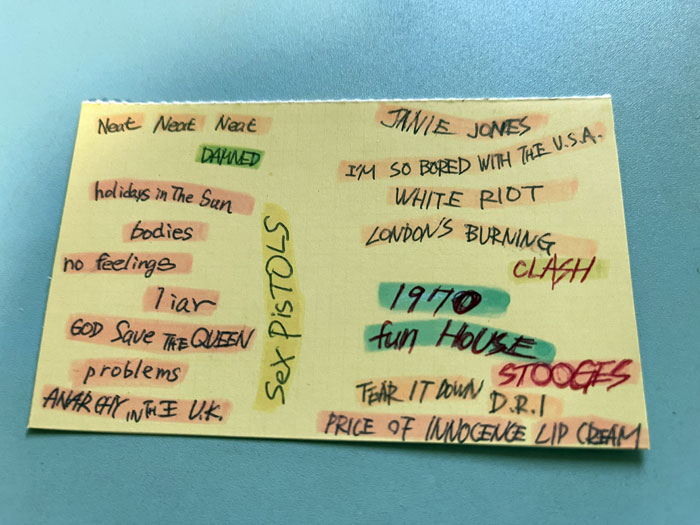 Neat Neat Neat
DAMNED
holidays in The Sun
bodies
no feelings
liar
GOD Save THE QUEEN
problems
ANARCHY IN THE U.K.
Sex PisTOLS
JANIE JONES
I'M SO BORED WITH THE U.S.A.
WHITE RIOT
LONDON'S BURNING
CLASH
1970
fun HOUSE
STOOGES
TEAR IT DOWN D.R.I
PRICE OF INNOCENCE LIP CREAM